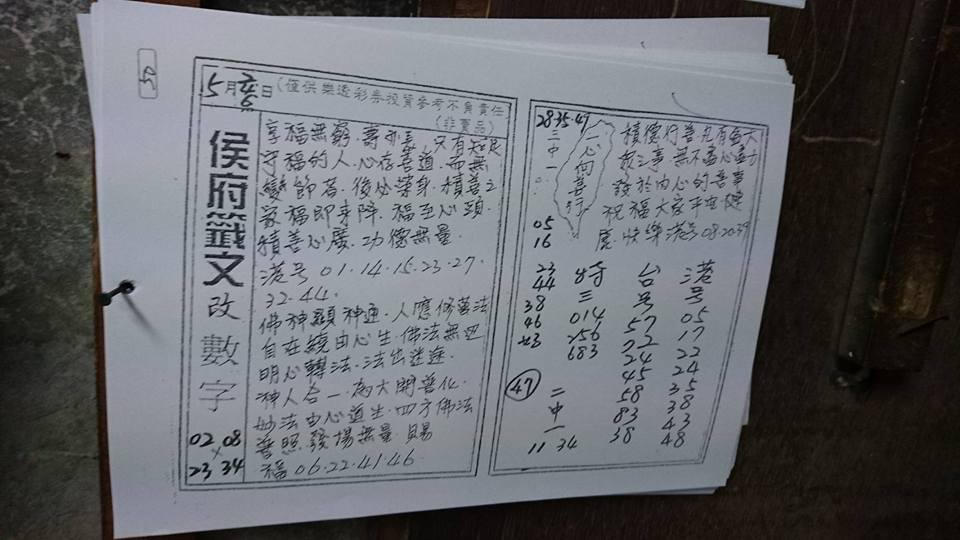 50
5月
日(僅供樂透彩券投資參考不負責任
(非賣品)
侯府籤文
改數字
02 08
×
23 34
享福無窮.壽亦長.只有知足
守福的人.心存善道.而無
變節者.後必榮身.積善之
家福即來降.福至心頭.
積善心廣.功德無量.
港号01.14.15.23.27.
32.44.
佛神顯神通.人應修善法
自在繞由心生.佛法無边
明心轉法.法出迷途.
神人合一.為大開善化.
妙法由心道生.四方佛法
普照.發揚無量.賜
福06.22.41.46.
28.35.47
三中一
05
16
23
44
38
46
心向善行
積德行善凡有
於由心的善事
祝福大家平安健
康.快樂港号08.20.39
特三
014
256
683
台号
57
72
24
45
58
83
38
港号
05
17
22
24
35
38
43
48
47
二中一
11 34